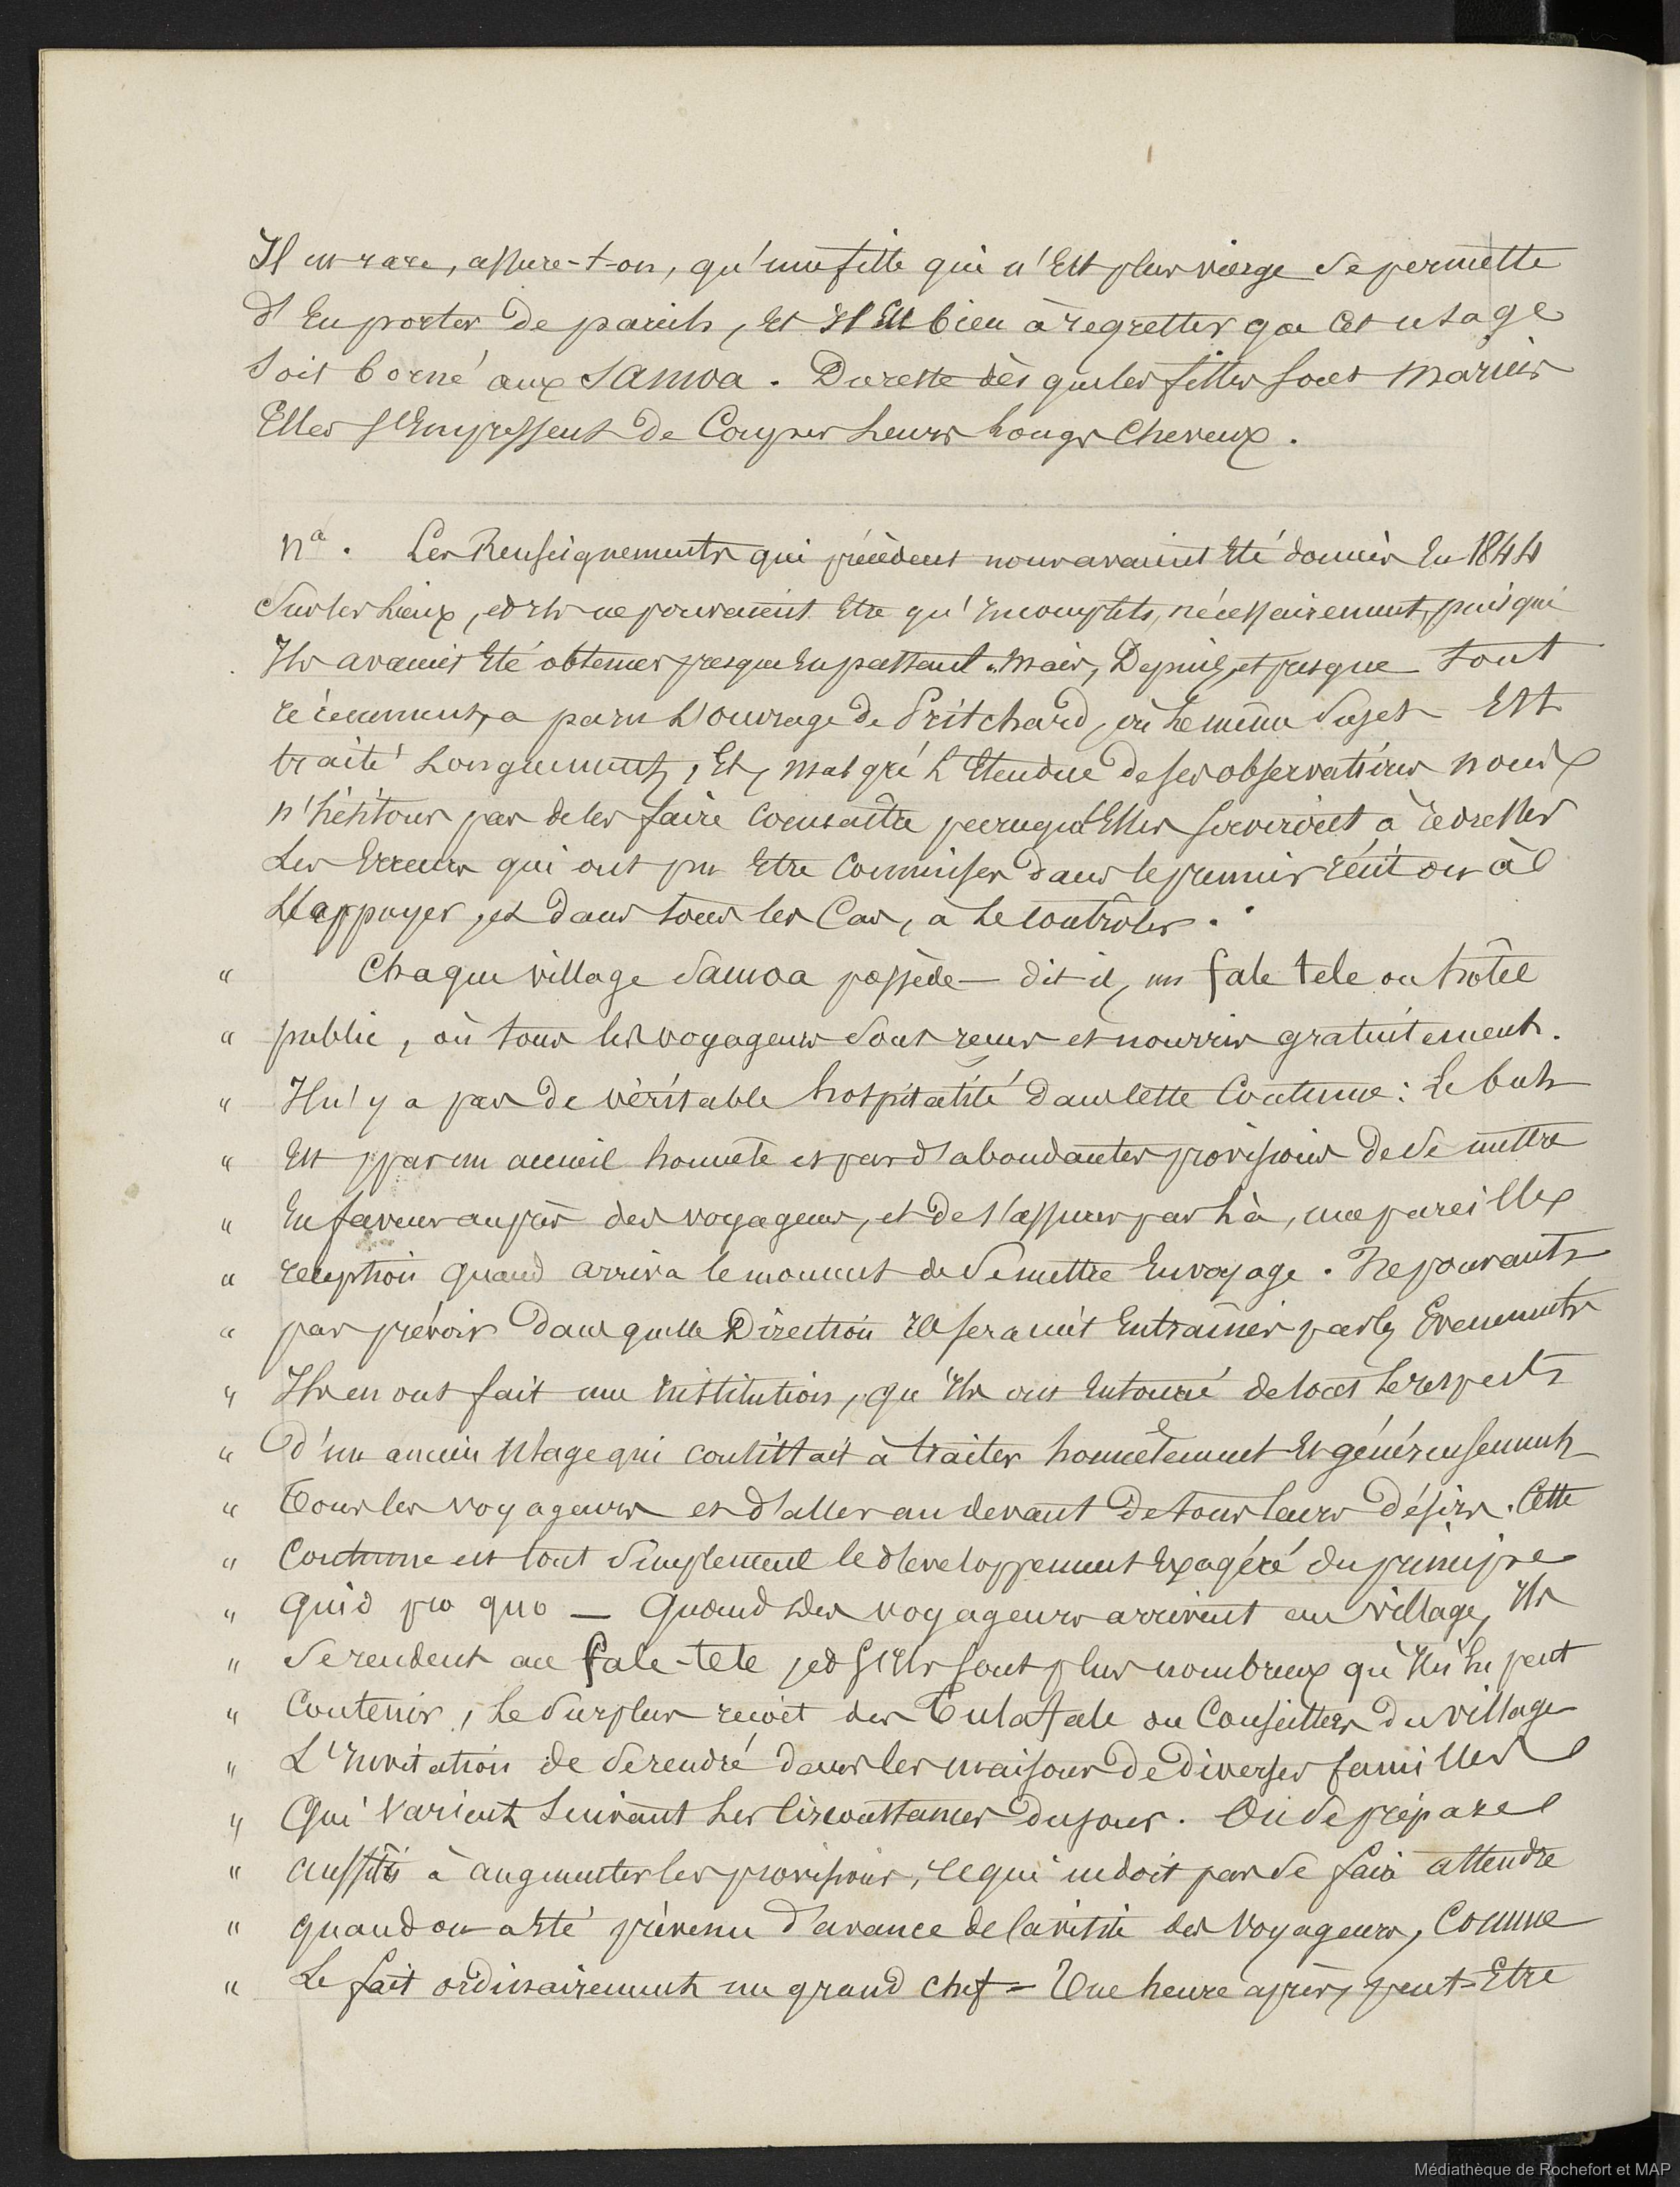 Il est rare, assure-t-on, qu'une fille qui n'Est plus vierge se permette
d'En porter de pareils, Et Il Est bien à regretter que Cet usage
soit borné aux Samoa. Du reste dès que les filles sont mariées
Elles s'Empressent de Couper Leurs Longs Cheveux.
na. Les Renseignements qui précèdent nous avaient Eté donnés En 1844
Sur les Lieux, et Ils ne pouvaient Etre qu'Incomplets, nécessairement, puisqu'
Ils avaient Eté obtenus presque En passant. Mais, Depuis, et presque tout
récemment, a paru L'ouvrage de Pritchard, où Le même Sujet Est
traité Longuement, Et, malgré L'Etendue de ses observations nous
n'hésitons pas de les faire Connaître puisqu'Elles serviront à redresser
Les Erreurs qui ont pu Etre Commises dans le premier récit ou à
L'appuyer, et dans tous les Cas, à Le Contrôler.
" Chaque village Samoa possède — dit-il, un fale tele ou hôtel
" public, où tous les voyageurs sont reçus et nourris gratuitement.
" Il n'y a pas de véritable hospitalité dans Cette Coutume : Le but
" Est par un accueil honnête et par d'abondantes provisions de Se mettre
" En faveur auprès des voyageurs, et de s'assurer par Là, une pareille
" réception quand arriva le moment de Se mettre En voyage. Ne pouvant
" pas prévoir dans quelle Direction Ils seraient Entraînés par les Evenements
" Ils en ont fait une Institution, qu'Ils ont Entouré de tout Le respect
" d'un ancien Usage qui Consistait à traiter honnêtement Et généreusement
" Tous les voyageurs et d'aller au devant De tous leurs Désirs. Cette
" Coutume est tout Simplement le developpement Exagéré du principe
" Quid pro quo — Quand des voyageurs arrivent au village, Ils
" Se rendent au fale-tele, et s'Ils sont plus nombreux qu'Il n'En peut
" Contenir, Le Surplus reçoit des Tulafale ou Conseillers Du village
" L'Invitation de Se rendre dans les maisons De diverses familles
" Qui Varient Suivant Les Circonstances Du jour. On Se prépare
" aussitôt à augmenter les provisions, Ce qui ne doit pas Se faire attendre
" quand on a Eté prévenu d'avance de la visite des Voyageurs, Comme
" Le fait ordinairement un grand Chef = Une heure après, peut-Etre
Médiathèque de Rochefort et MAP